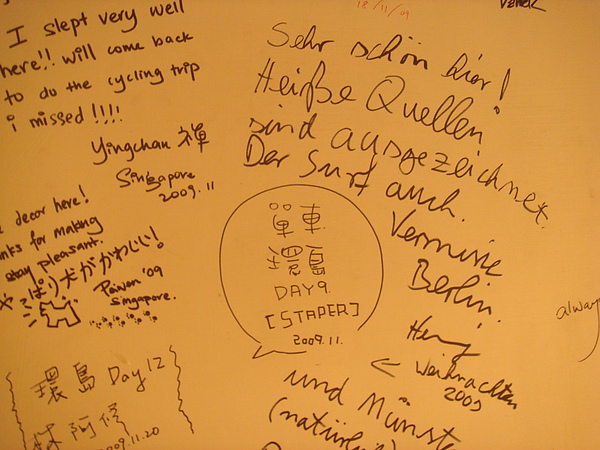 I slept very well
here!! will come back
to do the cycling trip
i missed !!!!
Yingchan 禪
Singapore
2009.11
18/11/09
Sehr schön hier!
Heiße Quellen
sind ausgezeichnet.
Der Surf auch.
Berlin.
Weihnachten
2009
und
(natürlich
decor here!
for making
stay pleasant.
やっぱり犬がかわいい!
'09
Singapore.
單車
環島
DAY9.
[STAPER]
2009.11.
環島 Day 12
2009.11.20
always